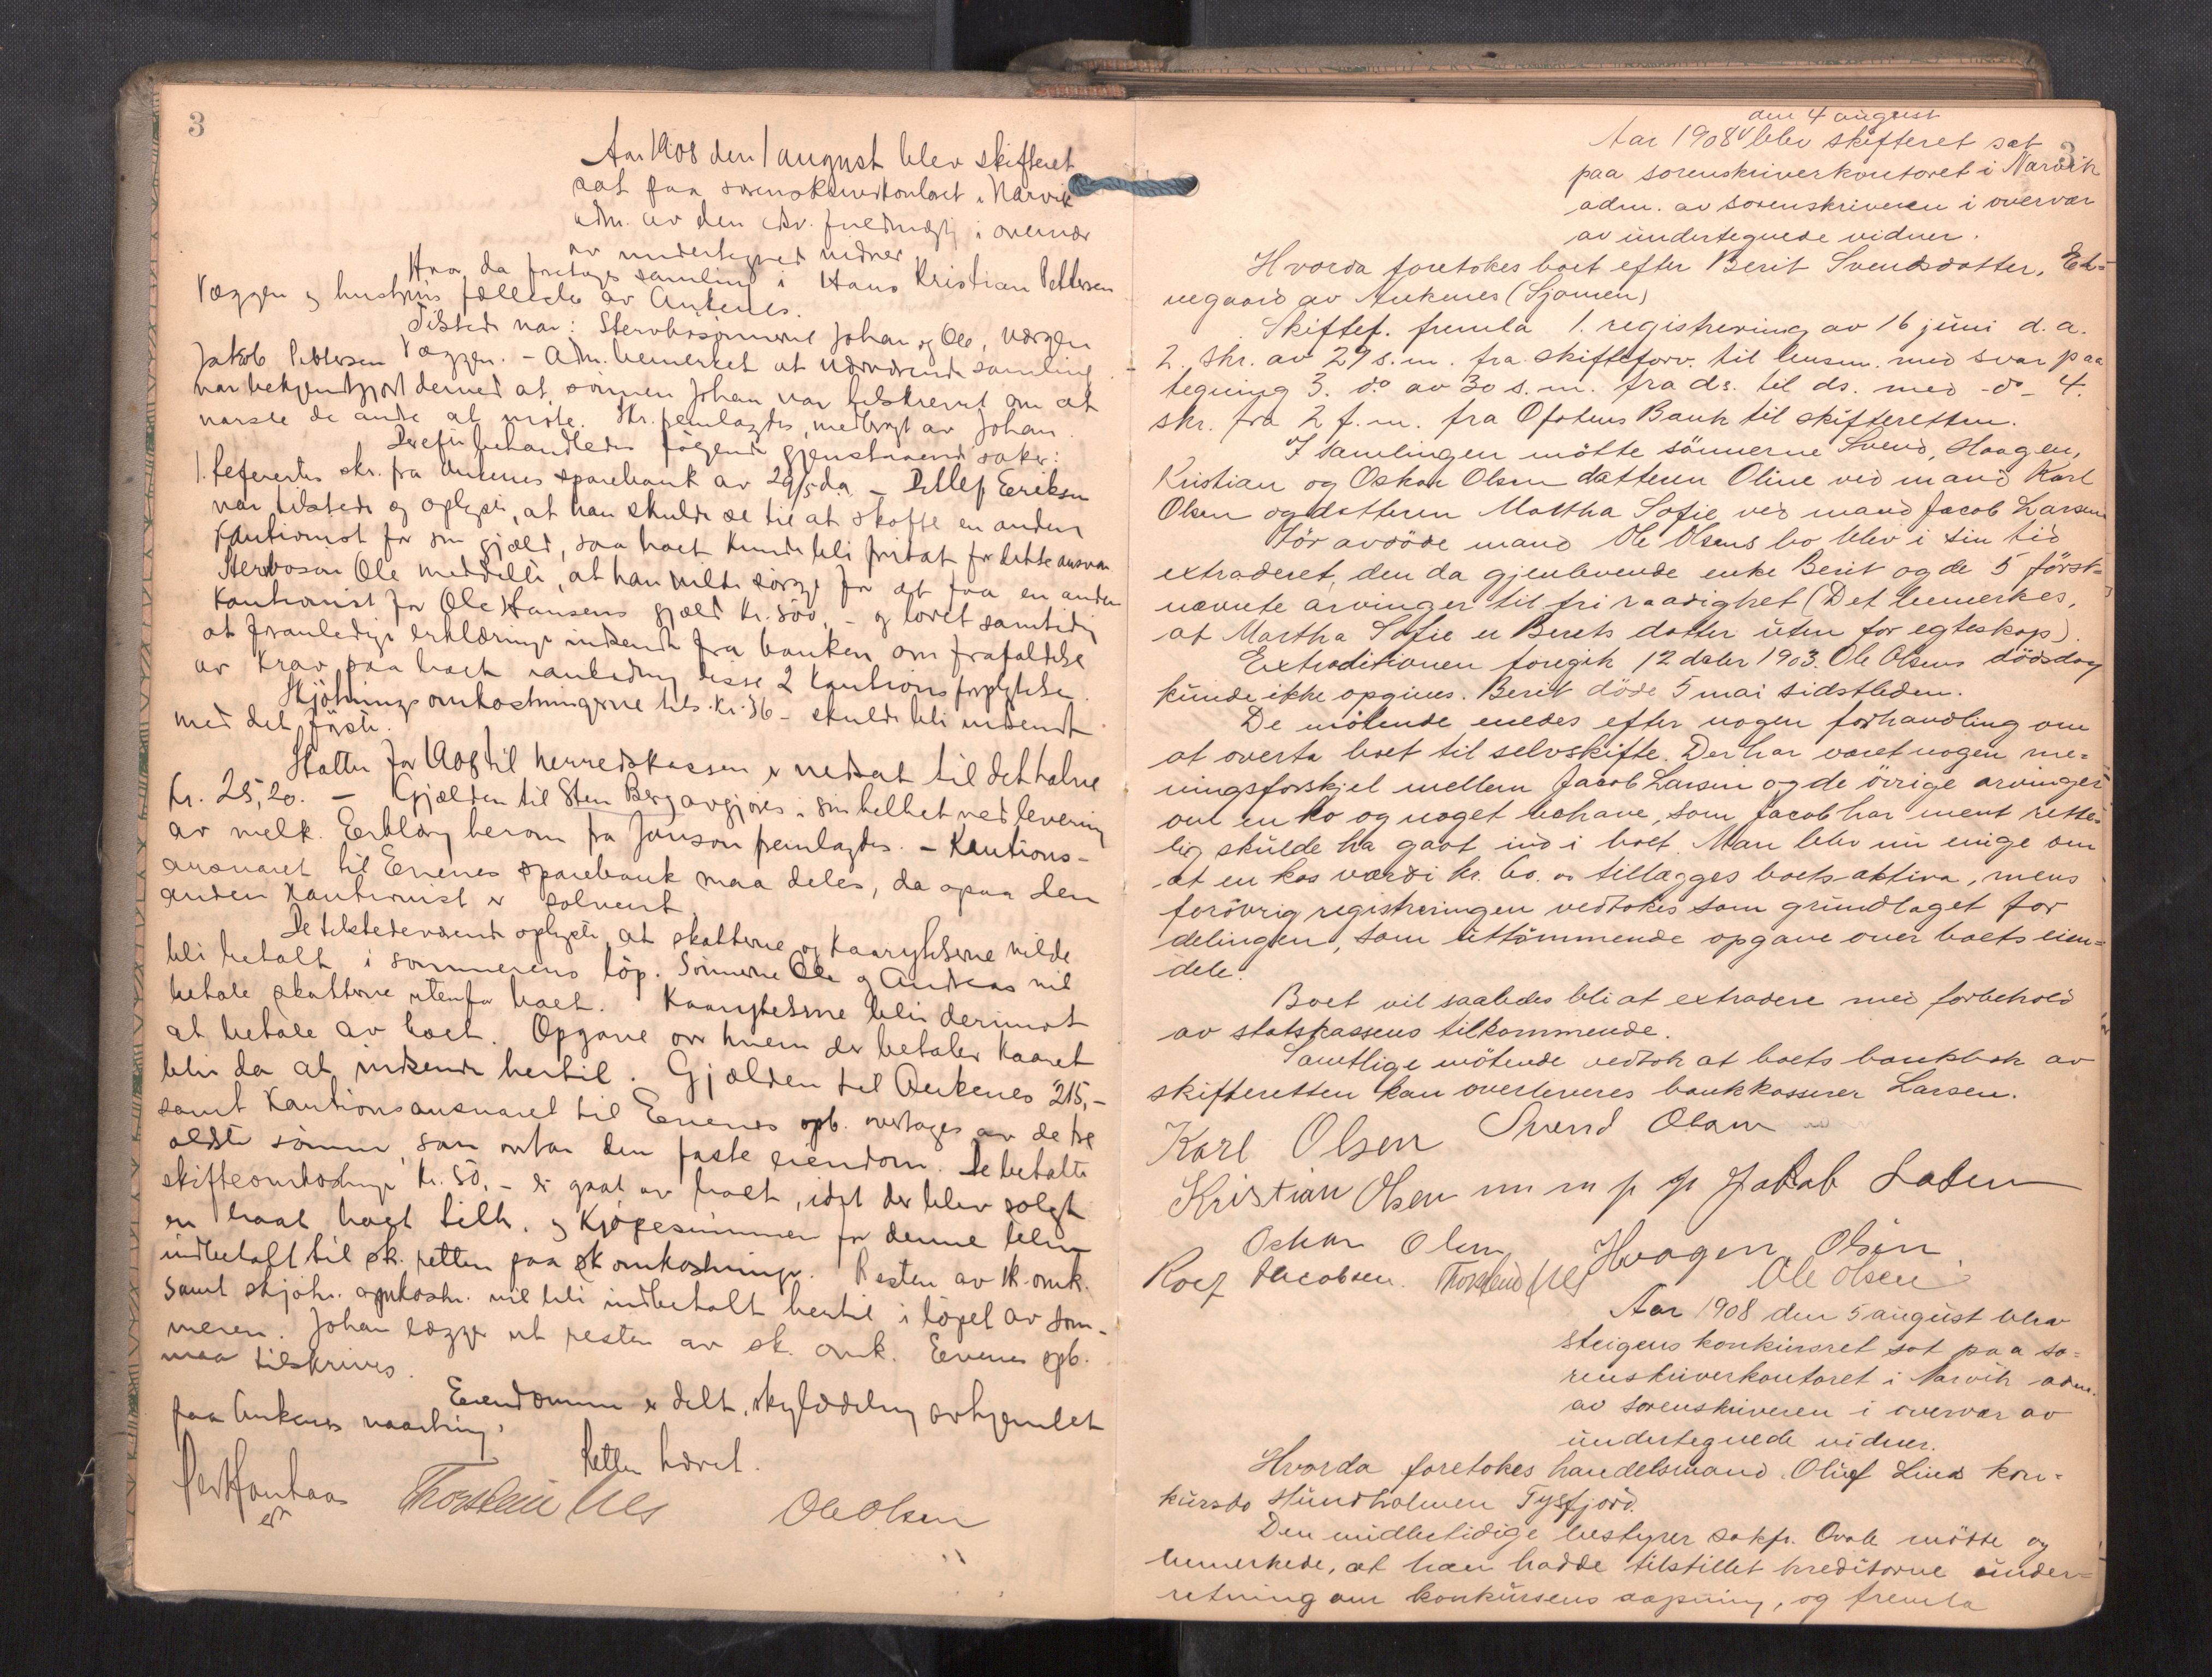 3
Aar 1908 den 1 august blev skifteret
sat paa sorenskriverkontoret i Narvik
adm. av den edsv. fuldmægtig i overvær
av undertegnede vidner
Hvor da foretoges samling i Hans Kristian Pettersen
Væggen og hustrus fællesbo av Ankenes.
Tilstede var: Stervbosønnerne Johan og Ole, værgen
Jakob Pettersen Væggen. - Adm. bemerket at nærværende samling
var bekjendtgjort derved at sønnen Johan var tilskrevet om at
varsle de andre at møte. Skr. fremlagdes, medbragt av Johan.
Derefter behandledes følgende gjenstaaende saker:
1. Refererte skr. fra Ankenes sparebank av 29/5 d.a. - Detlef Eriksen
var tilstede og oplyste, at han skulde se til at skaffe en anden
kautionist for sin gjæld, saa boet kunde bli fritat for dette ansvar
Stervbosøn Ole meddelte, at han vilde sørge for at faa en anden
kautionist for Ole Hansens gjæld kr. 500,- og lovet samtidig
at foranledige erklæringe indsendt fra banken om frafaldelse
av krav paa boet i anledning disse 2 kautionsforpligtelser.
Skjøtningsomkostningerne tils. kr. 36 - skulde bli indsendt
med det første.
Skatten for 1908 til herredskassen er nedsat til det halve
kr. 25,20. - Gjælden til Sten Berg avgjøres i sin helhet ved levering
av melk. Erklæring herom fra Jonson fremlagdes. - Kautions-
ansvaret til Evenes sparebank maa deles, da ogsaa den
anden kautionist er solvent
De tilstedeværende oplyste at skatterne og kaarytelserne vilde
bli betalt i sommerens løp. Sønnerne Ole og Andreas vil
betale skatterne utenfor boet. Kaarytelserne blir derimot
at betale av boet. Opgave over hvem der betaler kaaret
blir da at indsende hertil. Gjælden til Ankenes 215,-
samt kautionsansvaret til Evenes spb. overtages av de tre
ældste sønner, som overtar den faste eiendom. De betalte
skifteomkostninger kr. 50,- er gaat av boet, idet der blev solgt
en baat boet tilh. og kjøpesummen for denne blev
indbetalt til sk. retten paa sk omkostninger. Resten av sk. omk.
samt skjøtn. omkostn. vil bli indbetalt hertil i løpet av som-
meren. Johan lægger ut resten av sk. omk. Evenes spb.
maa tilskrives.
Eiendommen er delt, skylddeling avhjemlet
paa Ankenes vaarting.
Retten hævet.
Thorstein Nes Ole Olsen
3
den 4 august
Aar 1908 blev skifteret sat
paa sorenskriverkontoret i Narvik
adm. av sorenskriveren i overvær
av undertegnede vidner.
Hvorda foretokes boet efter Berit Svendsdatter, El-
vegaard av Ankenes (Sjomen)
Skiftef. fremla 1. registrering av 16 juni d. a.
2. skr. av 27 s.m. fra skifteforv. til lensm. med svar paa
tegning 3. do av 30 s.m. fra ds. til ds. med - do - 4.
skr. fra 2 f.m. fra Ofotens Bank til skifteretten.
I samlingen møtte sønnerne Svend, Haagen,
Kristian og Oskar Olsen datteren Oline ved mand Karl
Olsen og datteren Martha Sofie ved mand Jacob Larsen
Før avdøde mand Ole Olsens bo blev i sin tid
extraderet, den da gjenlevende enke Berit og de 5 först-
nævnte arvinger til fri raadighet (Det bemerkes,
at Martha Sofie er Berets datter uten for egteskap).
Extraditionen foregik 12 dcbr 1903. Ole Olsens dödsdag
kunde ikke opgives. Berit döde 5 mai sidstleden.
De mötende enedes efter nogen forhandling om
at overta boet til selvskifte. Der har været nogen me-
ningsforskjel mellem Jacob Larsen og de övrige arvinger
om en ko og noget bohave, som Jacob har ment rette-
lig skulde ha gaat ind i boet. Man blev nu enige om
at en kos værdi kr. 60.00 tillægges boets aktiva, mens
forövrig registreringen vedtokes som grundlaget for
delingen, som uttömmende opgave over boets eien-
dele.
Boet vil saaledes bli at extradere med forbehold
av statskassens tilkommende.
Samtlige mötende vedtok at boets bankbok av
skifteretten kan overleveres bankkasserer Larsen.
Karl Olsen Svend Olsen
Kristian Olsen m p p Jakob Larsen
Oskar Olsen Haagen Olsen
Jacobsen. Thorstein Nes Ole Olsen
Aar 1908 den 5 august blev
Steigens konkursret sat paa so-
renskriverkontoret i Narvik adm.
av sorenskriveren i overvær av
undertegnede vidner.
Hvorda foretokes handelsmand Oluf Linds kon-
kursbo Hundholmen Tysfjord.
Den midlertidige bestyrer sakfr. Qvale mötte og
bemerkede, at han hadde tilstillet kreditorne under-
retning om konkursens aapning, og fremla